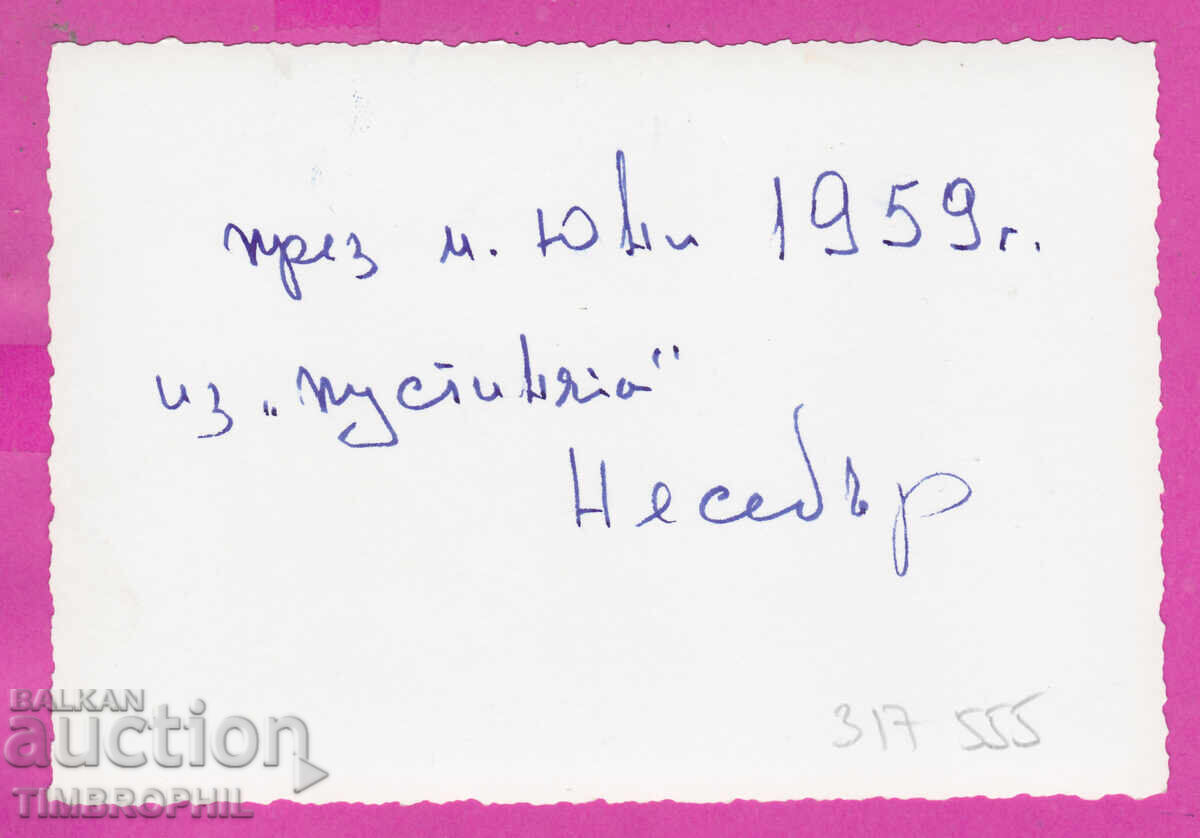 през м. Юни 1959 г.
из „пустинята"
Несебър
317 555
BALKAN
auction
TIMBROPHIL